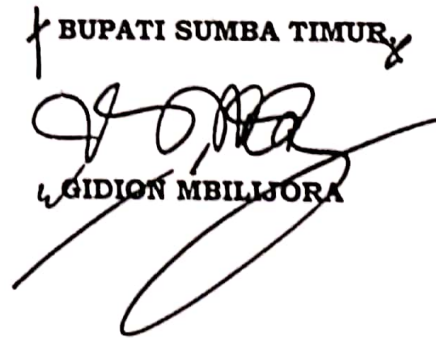 BUPATI SUMBA TIMUR,
GIDION MBILIJORA